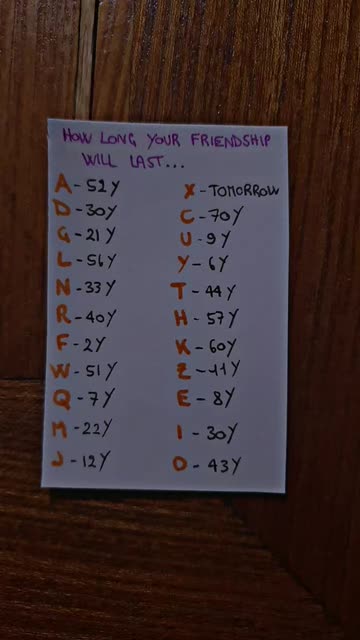 HOW LONG YOUR FRIENDSHIP
WILL LAST...
A - 52Y
D - 30Y
G - 21Y
L - 56Y
N - 33Y
R - 40Y
F - 2Y
W - 51Y
Q - 7Y
M - 22Y
J - 12Y
X - TOMORROW
C - 70Y
U - 9Y
Y - 6Y
T - 44Y
H - 57Y
K - 60Y
Z - 11Y
E - 8Y
I - 30Y
O - 43Y